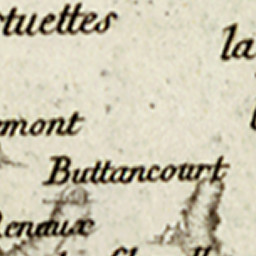 ctuettes
la
emont
Buttancourt
Renaux